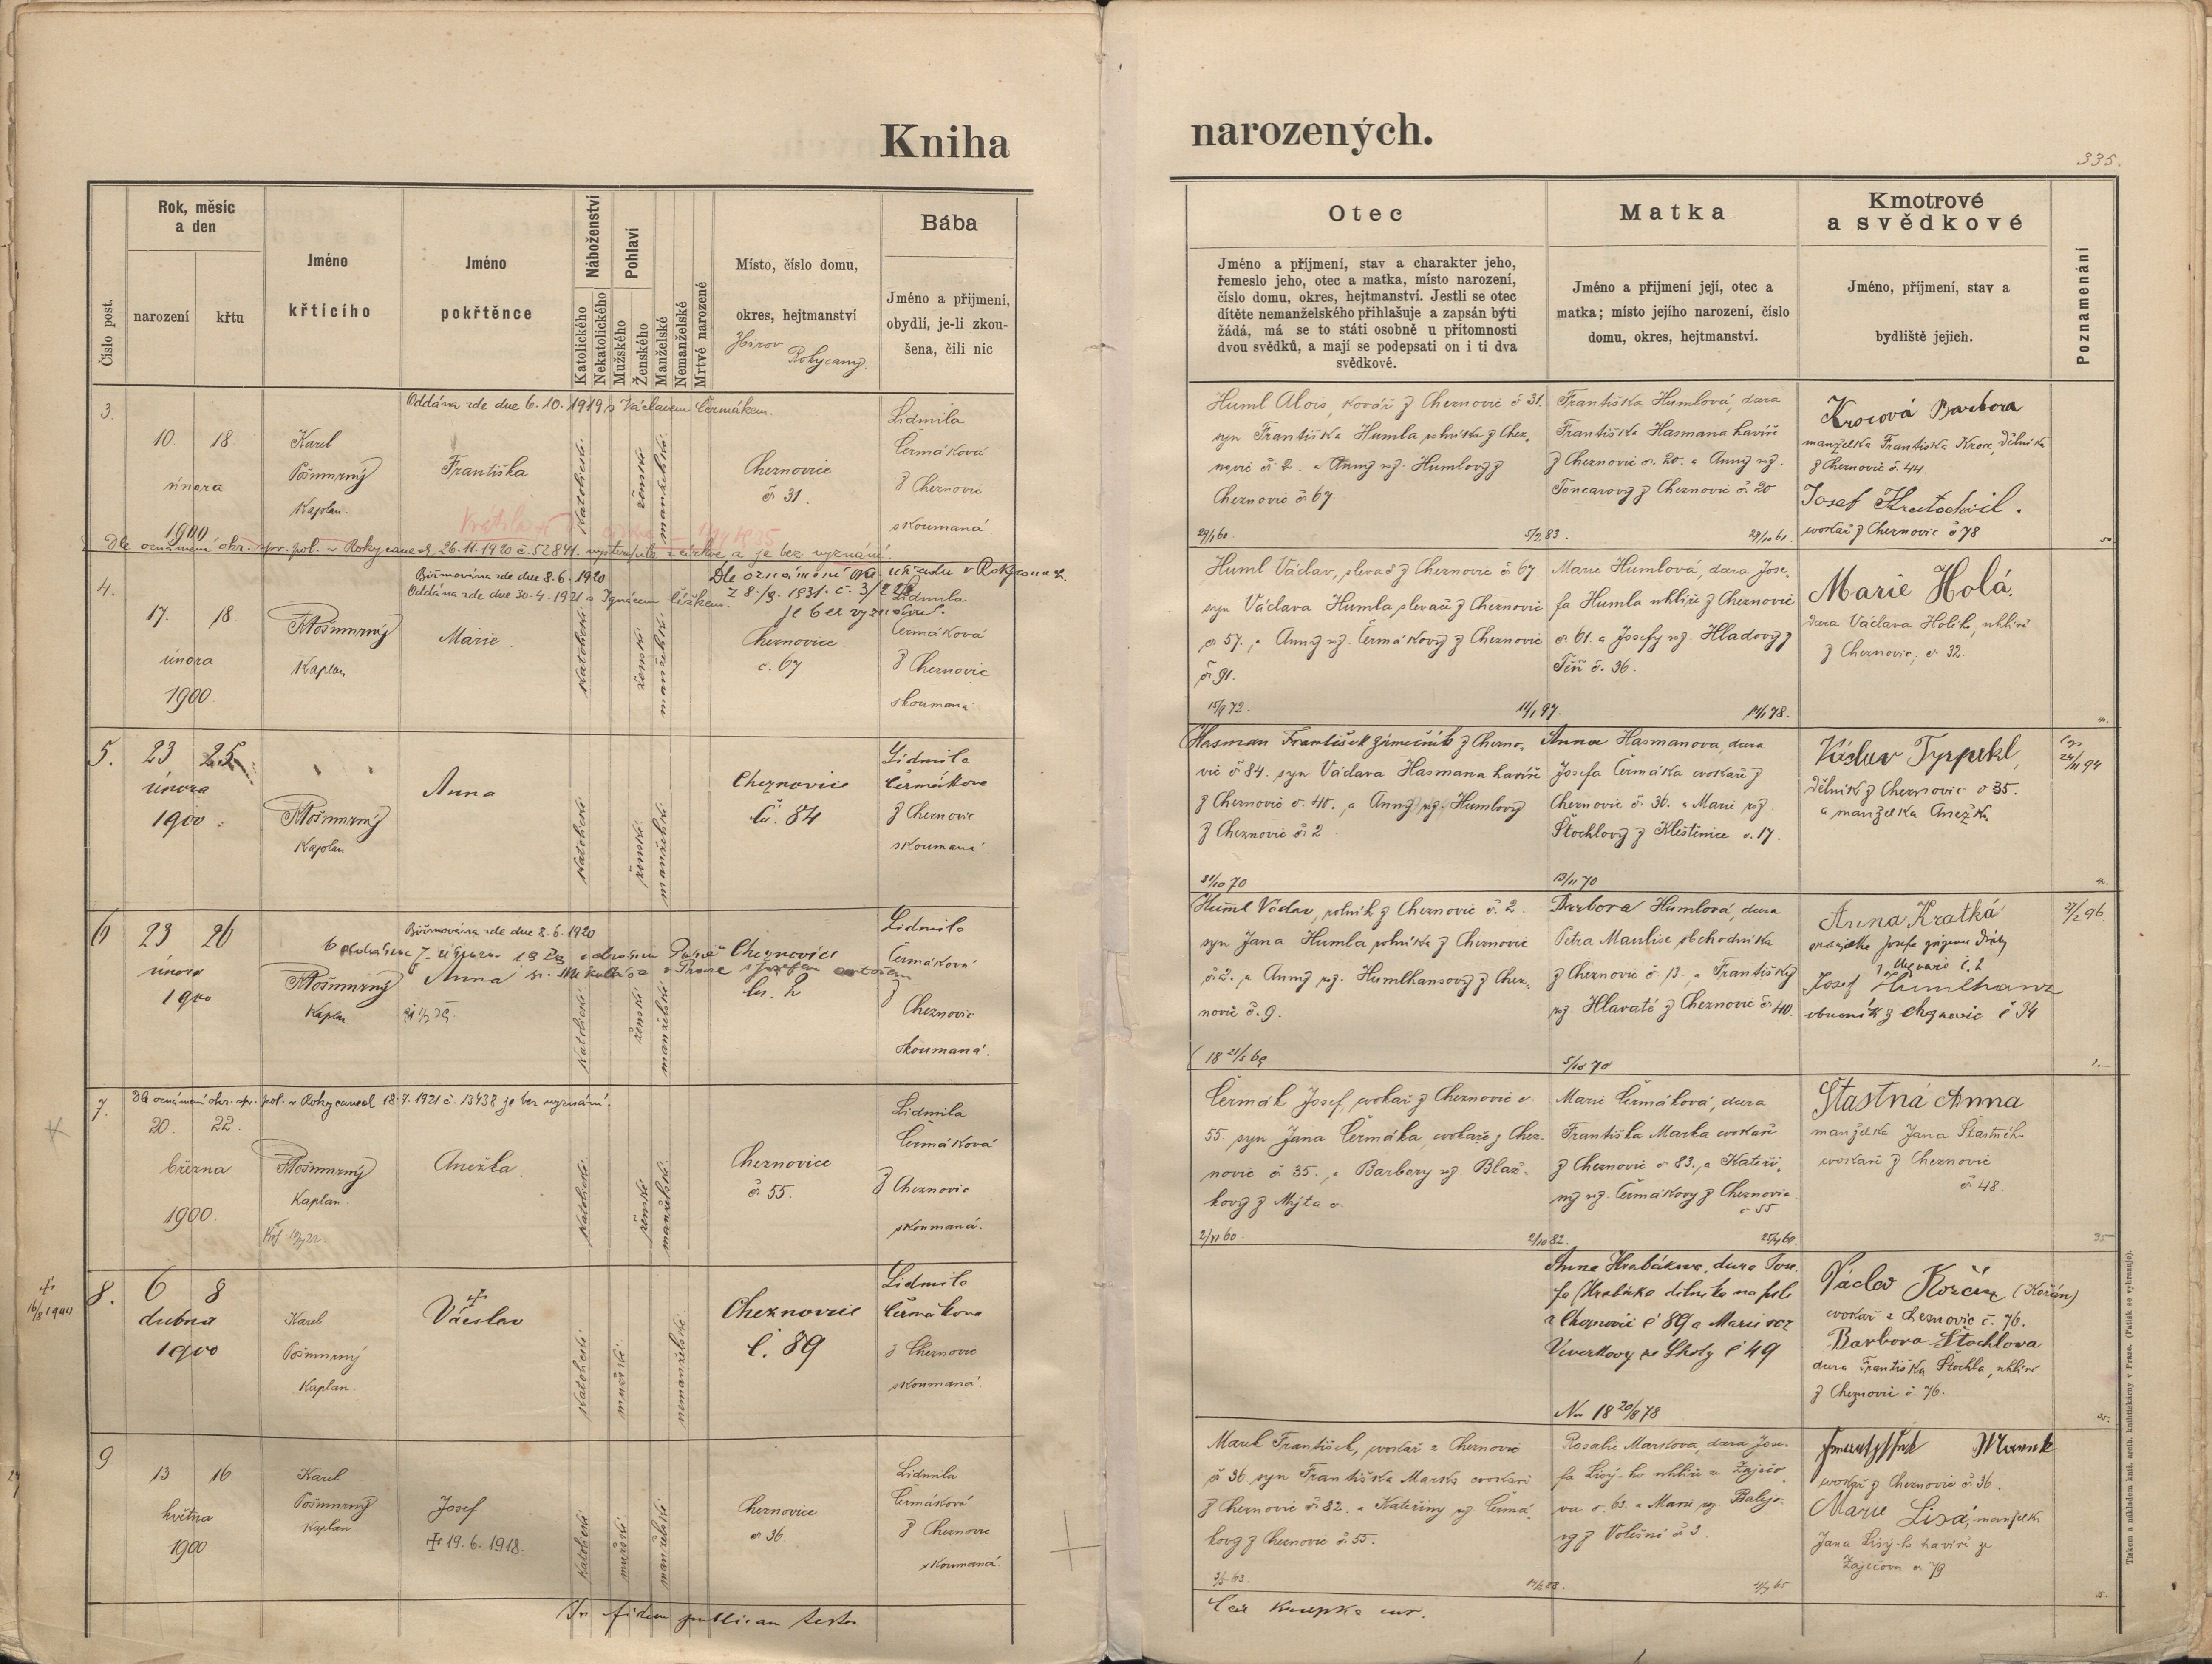 Kniha narozených.
335.
Číslo post.
Rok, měsíc
a den
narození
křtu
Jméno
křtícího
Jméno
pokřtěnce
Náboženství
Katolického
Nekatolického
Pohlaví
Mužského
Ženského
Manželské
Nemanželské
Mrtvé narozené
Místo, číslo domu,
okres, hejtmanství
Rokycany
Bába
Jméno a přijmení,
obydlí, je-li zkou-
šena, čili nic
Otec
Jméno a příjmení, stav a charakter jeho,
řemeslo jeho, otec a matka, místo narození,
číslo domu, okres, hejtmanství. Jestli se otec
dítěte nemanželského přihlašuje a zapsán býti
žádá, má se to státi osobně u přítomnosti
dvou svědků, a mají se podepsati on i ti dva
svědkové.
Matka
Jméno a přijmení její, otec a
matka; místo jejího narození, číslo
domu, okres, hejtmanství.
Kmotrové
a svědkové
Jméno, příjmení, stav a
bydliště jejich.
Poznamenání
3.
Oddána zde dne 6.10.1919 s Václavem Čermákem.
10. 18.
února
1900
Karel
Pošmurný
Kaplan.
Františka
katolické
ženské
manželské
Cheznovice
č 31.
Lidmila
Čermáková
z Cheznovic
zkoumaná
Huml Alois, kovář z Cheznovic č 31.
syn Františka Humla rolníka z Chez-
novic č. 2. a Anny roz. Humlovy z
Cheznovic č. 67.
Františka Humlová, dcera
Františka Hasmana havíře
z Cheznovic č. 20. a Anny roz.
z Cheznovic č. 20
Krocová Barbora
manželka Františka Kroce, dělníka
z Cheznovic č. 44.
Josef Kratochvil.
cvokař z Cheznovic č 78
Dle oznámení okr. spr. pol. v Rokycanech 26.11.1920 č. 52841. vystoupila z církve a je bez vyznání.
4.
Biřmována zde dne 8.6.1920
Oddána zde dne 30.4.1921 s Ignácem
Dle oznámení okr. úřadu v Rokycanech
je bez vyznání.
17. 18.
února
1900
Pošmurný
Kaplan
Marie
katolické
ženské
manželské
Cheznovice
č. 67.
Lidmila
Čermáková
z Cheznovic
zkoumaná
Huml Václav, slevač z Cheznovic č 67
syn Václava Humla slevače z Cheznovic
č 57. a Anny roz. Čermákovy z Cheznovic
č 91.
Marie Humlová, dcera Jose-
fa Humla uhlíře z Cheznovic
č. 61. a Josefy roz. Hladovy z
Těň č. 36.
Marie Holá.
dcera Václava Holého, uhlíře
z Cheznovic, č 32.
5.
23 25
února
1900
Pošmurný
Kaplan
Anna
katolické
ženské
manželské
Cheznovice
čís. 84
Lidmila
Čermákova
z Cheznovic
zkoumaná
Hasman František zámečník z Chezno-
vic č 84. syn Václava Hasmana havíře
z Cheznovic č. 40. a Anny roz. Humlovy
z Cheznovic č. 2
31/10 70
Anna Hasmanova, dcera
Josefa Čermáka cvokaře z
Cheznovic č. 36. a Marie roz.
Štochlovy z Kleštěnice č. 17.
13/11 70
Václav Tyrpekl,
dělník z Cheznovic č 35.
a manželka Anežka
6
Biřmována zde dne 8.6.1920
23 26
února
1900
Pošmurný
Kaplan
Anna
katolické
ženské
manželské
Cheznovice
čís. 2
Lidmila
Čermáková
z
Cheznovic
zkoumaná.
Huml Václav, rolník z Cheznovic č. 2.
syn Jana Humla rolníka z Cheznovic
č. 2. a Anny roz. Humlhansovy z Chez-
novic č. 9.
Barbora Humlová, dcera
Petra Maulise obchodníka
z Cheznovic č 13. a Františky
roz. Hlavaté z Cheznovic č. 40.
5/10 70
Anna Kratká
Josef Humlhans
obuvník z Cheznovic č 34
27/2 96.
7.
Dle oznámení okr. spr. pol. v Rokycanech 18.7.1921 č. 13438 je bez vyznání.
20. 22.
března
1900.
Pošmurný
Kaplan.
Anežka.
katolické
ženské
manželské
Cheznovice
č 55.
Lidmila
Čermáková
z Cheznovic
zkoumaná.
Čermák Josef, cvokař z Cheznovic č.
55. syn Jana Čermáka, cvokaře z Chez-
novic č 35., a Barbory roz. Blaž-
kovy z Mýta č.
Marie Čermáková, dcera
Františka Marka cvokaře
z Cheznovic č 83. a Kateři-
ny roz. Čermákovy z Cheznovic
č 55
Štastná Anna
manželka Jana Štastného
cvokaře z Cheznovic
č 48.
8.
6 8
dubna
1900
Karel
Pošmurný
Kaplan.
Václav
katolické
mužské
nemanželské
Cheznovice
č. 89
Lidmila
Čermákova
z Cheznovic
zkoumaná.
Anna Hrabákova, dcera Jose-
fa Hrabáka dělníka
z Cheznovic č 89 a Marie roz
Veverkovy ze Lhoty č 49
Nar 18 20/8 78
Václav Kořán (Kořán)
cvokař z Cheznovic č. 76.
Barbora Štochlova
dcera Františka Štochla, uhlíře
z Cheznovic č. 76.
9
13 16
května
1900
Karel
Pošmurný
Kaplan
Josef
† 19.6.1918.
katolické
mužské
manželské
Cheznovice
č 36.
Lidmila
Čermáková
z Cheznovic
zkoumaná
Marek František, cvokař z Cheznovic
č 36 syn Františka Marka cvokaře
z Cheznovic č 82. a Kateřiny roz. Čermá-
kovy z Cheznovic č. 55.
Rosalie Markova, dcera Jose-
fa Lisý-ho uhlíře z Zaječo-
va č. 63. a Marie roz.
z Volešné č 3
František Marek
cvokař z Cheznovic č 36.
Marie Lisá, manželka
Jana Lisý-ho havíře ze
Zaječova č. 79
In fidem publicam testor
Car Krupka cur.
Tiskem a nákladem kníž. arcib. knihtiskárny v Praze. (Patisk se vyhrazuje).